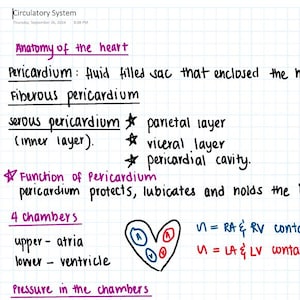 Circulatory System
Thursday, September 26, 2024 9:08 PM
Anatomy of the heart
Pericardium : fluid filled sac that enclosed the h
Fiberous pericardium
serous pericardium ☆ parietal layer
(inner layer). ☆ viceral layer
☆ pericardial cavity.
☆ Function of Pericardium
pericardium protects, lubicates and holds the
4 chambers
upper - atria
lower - ventricle
n = RA & RV conta
n = LA & LV conta
Pressure in the chambers